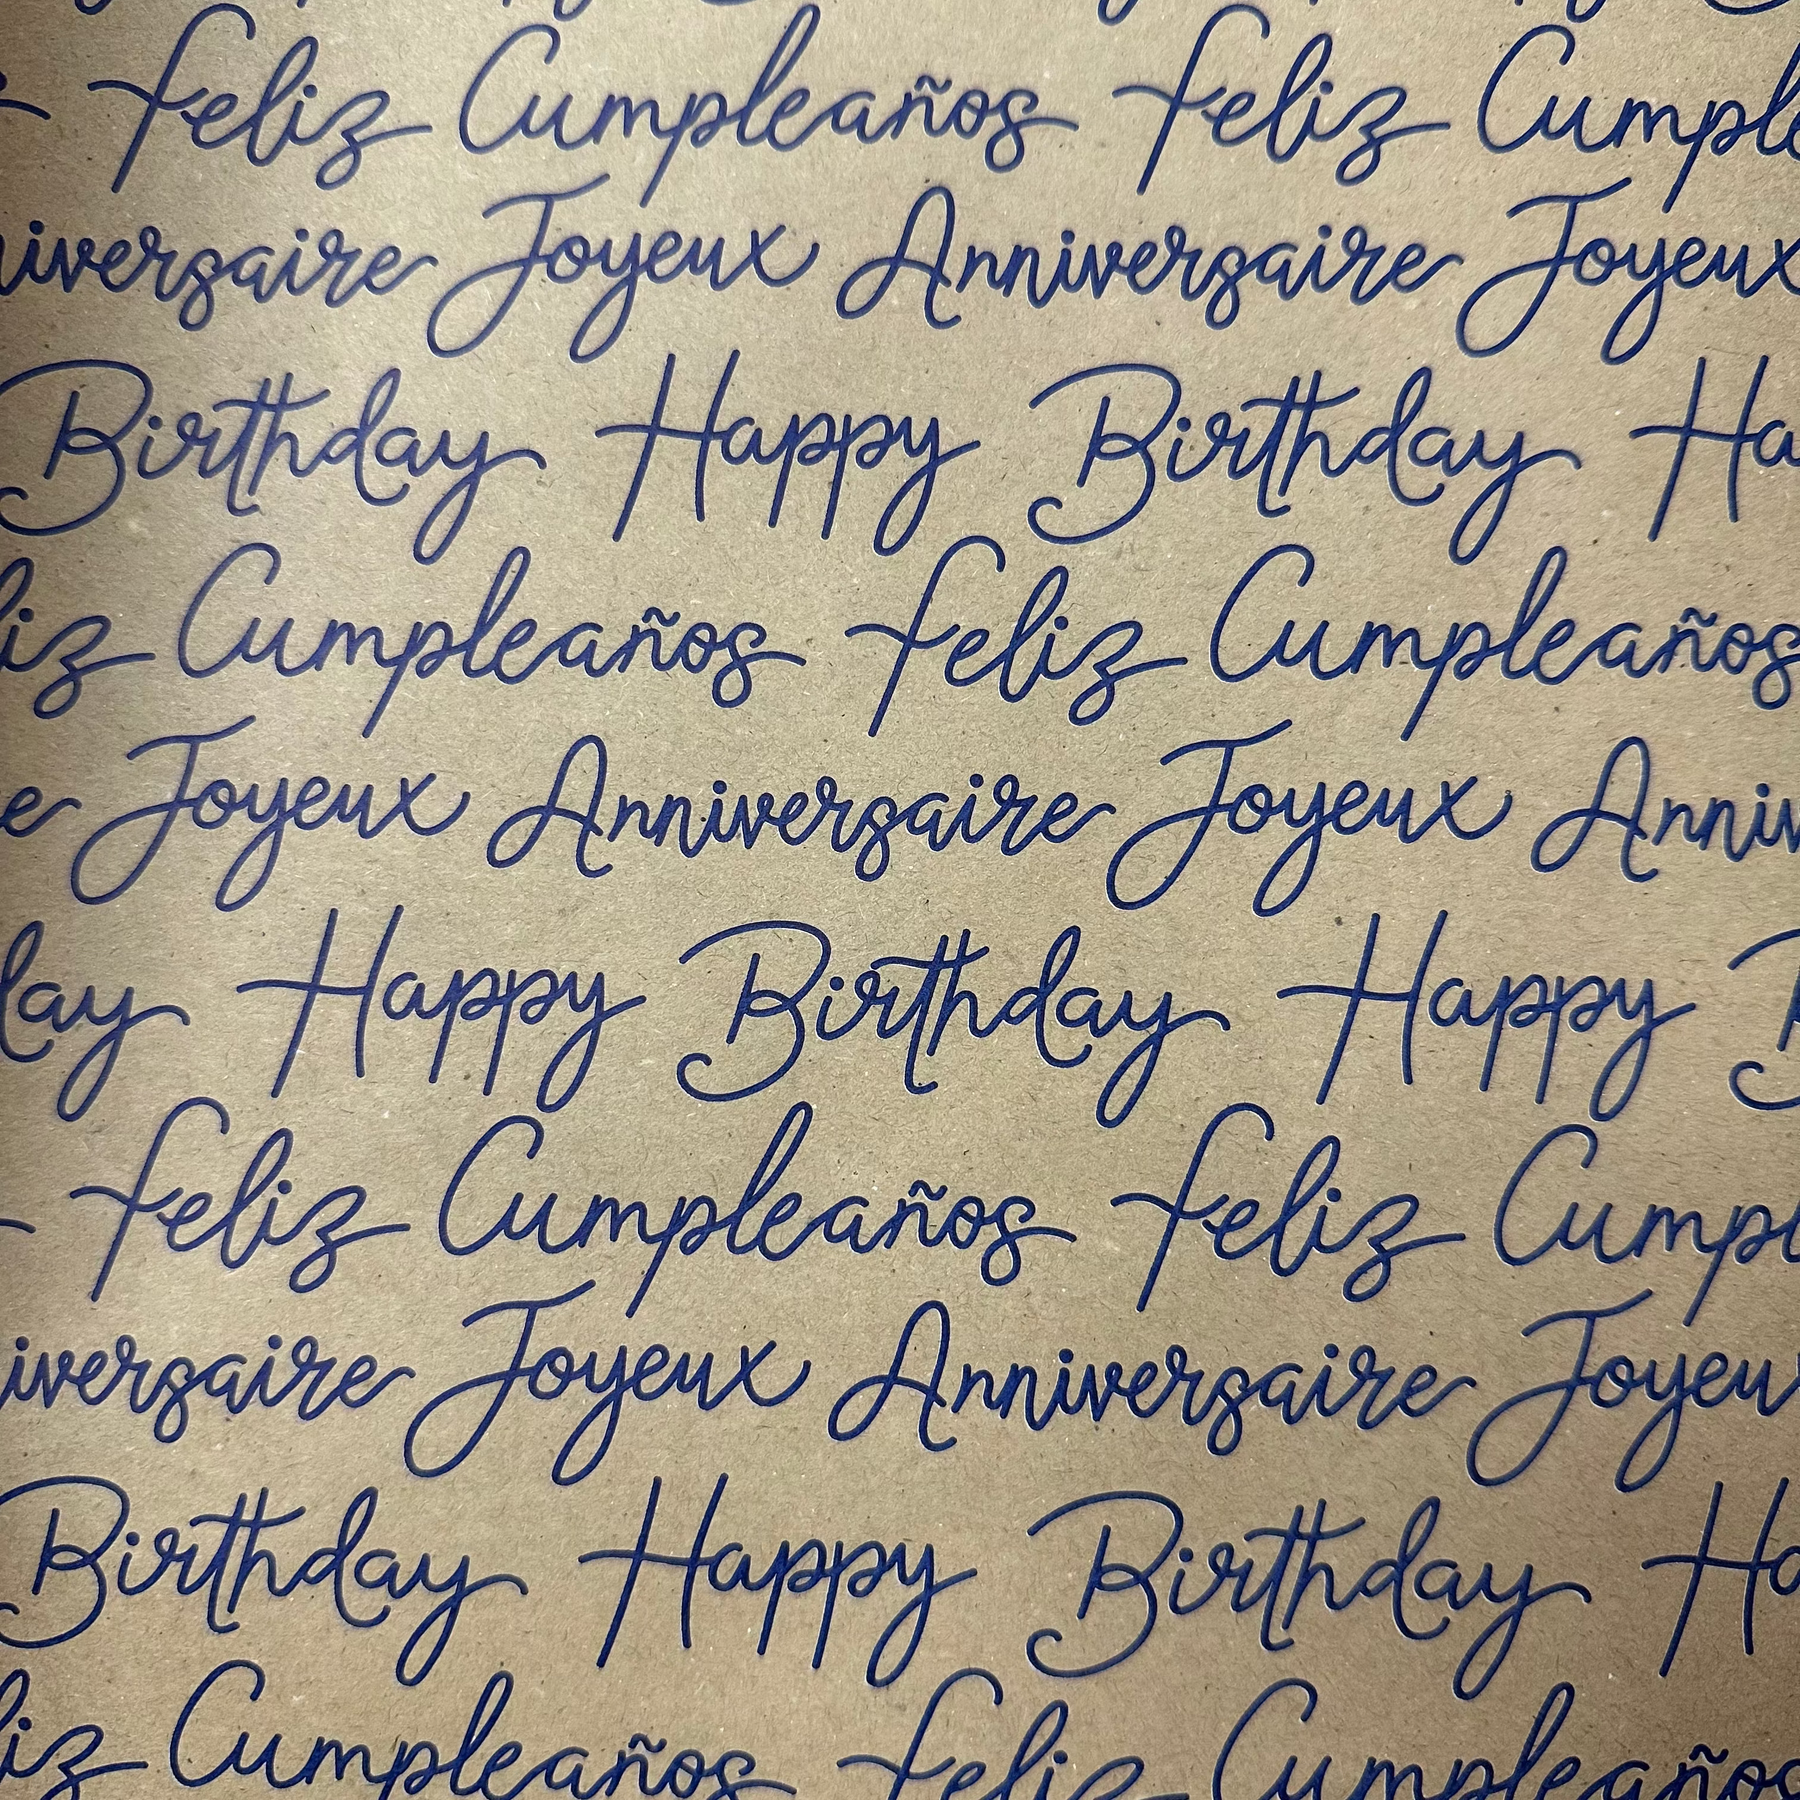 Feliz Cumpleaños Feliz Cumple
niversaire Joyeux Anniversaire Joyeux
Birthday Happy Birthday Ha
liz Cumpleaños Feliz Cumpleaños
e Joyeux Anniversaire Joyeux Anniv
day Happy Birthday Happy B
Feliz Cumpleaños Feliz Cumpl
iversaire Joyeux Anniversaire Joyeu
Birthday Happy Birthday Ha
liz Cumpleaños Feliz Cumpleaños